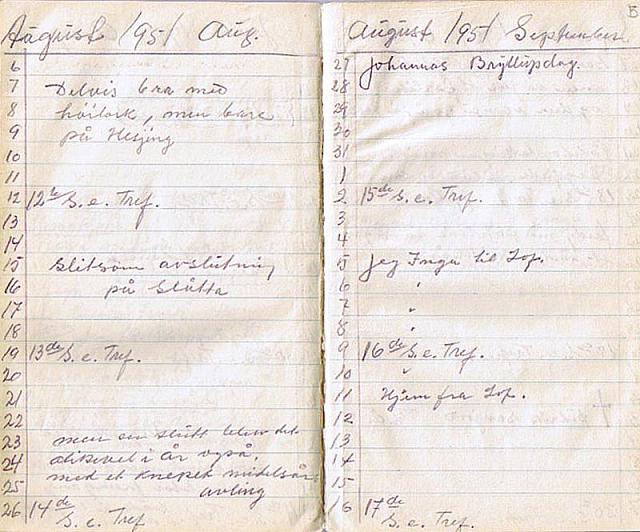 August 1951 Aug.
6
7 Delvis bra med
8 hőitork, men bare
9 på Hesjing
10
11
12 12te S. e. Tref.
13
14
15 slitsom avslutning
16 på Slåtta
17
18
19 13de S. e. Tref.
20
21
22
23 men en slutt blev det
24 allikevel i år også.
25 med et knepet middelsår avling
26 14de S. e. Tref
August 1951 September
27 Johannas Bryllupdag.
28
29
30
31
1
2 15de S. e. Tref.
3
4
5 Jeg Inga til Lop.
6 "
7 "
8 "
9 16de S. e. Tref.
10 "
11 Hjem fra Lop.
12
13
14
15
16 17de S. e. Tref.